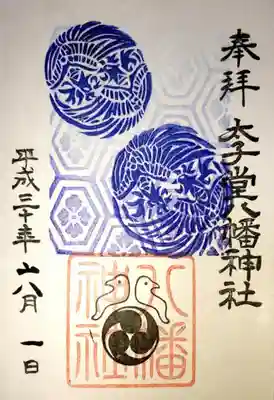 奉拝
太子堂八幡神社
八幡神社
平成三十年 八月 一日